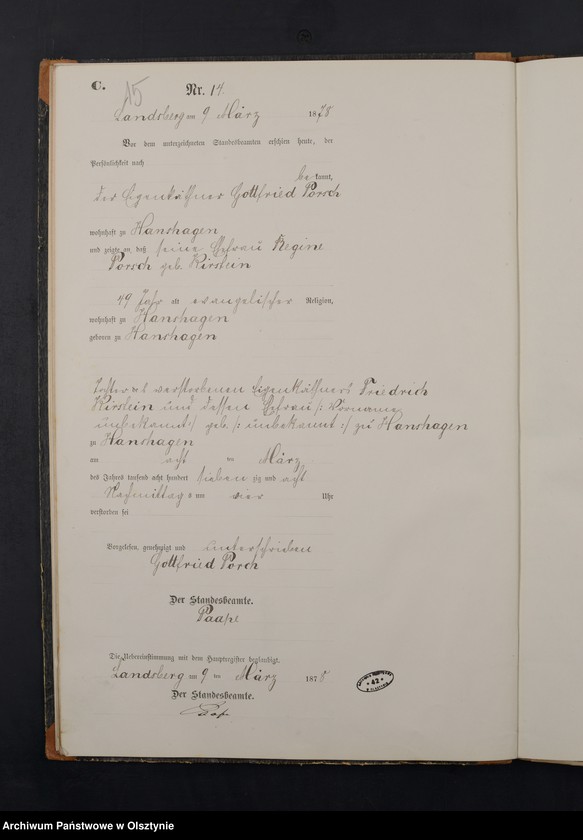 C.
15
Nr. 14.
Landsberg am 9 März 1878
Vor dem unterzeichneten Standesbeamten erschien heute, der
Persönlichkeit nach
bekannt,
der Eigenkäthner Gottfried Porsch
wohnhaft zu Hanshagen
und zeigte an, daß seine Ehefrau Regine
Porsch geb. Kirstein
49 Jahr alt evangelischer Religion,
wohnhaft zu Hanshagen
geboren zu Hanshagen
Tochter verstorbenen Eigenkäthners Friedrich
Kirstein und dessen Ehefrau /: Vorname
unbekannt :/ geb. /: unbekannt :/ zu Hanshagen
zu Hanshagen
am acht ten März
des Jahres tausend acht hundert siebenzig und acht
Nachmittags um vier Uhr
verstorben sei
Vorgelesen, genehmigt und unterschrieben
Gottfried Porch
Der Standesbeamte.
Paape
Die Uebereinstimmung mit dem Hauptregister beglaubigt.
Landsberg am 9 ten März 1878
Der Standesbeamte.
Paape
42
Archiwum Państwowe w Olsztynie